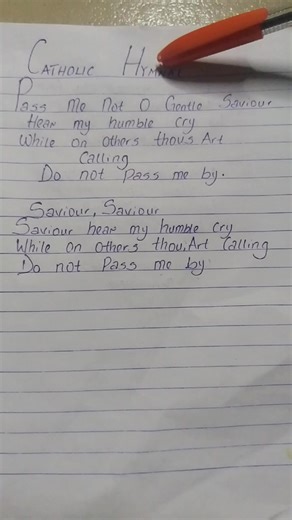 CATHOLIC HYMNAL
Pass me Not O Gentle Saviour
Hear my humble cry
While on others thou's Art
Calling
Do not pass me by.
Saviour, Saviour
Saviour hear my humble cry
While on others thou, Art Calling
Do not Pass me by